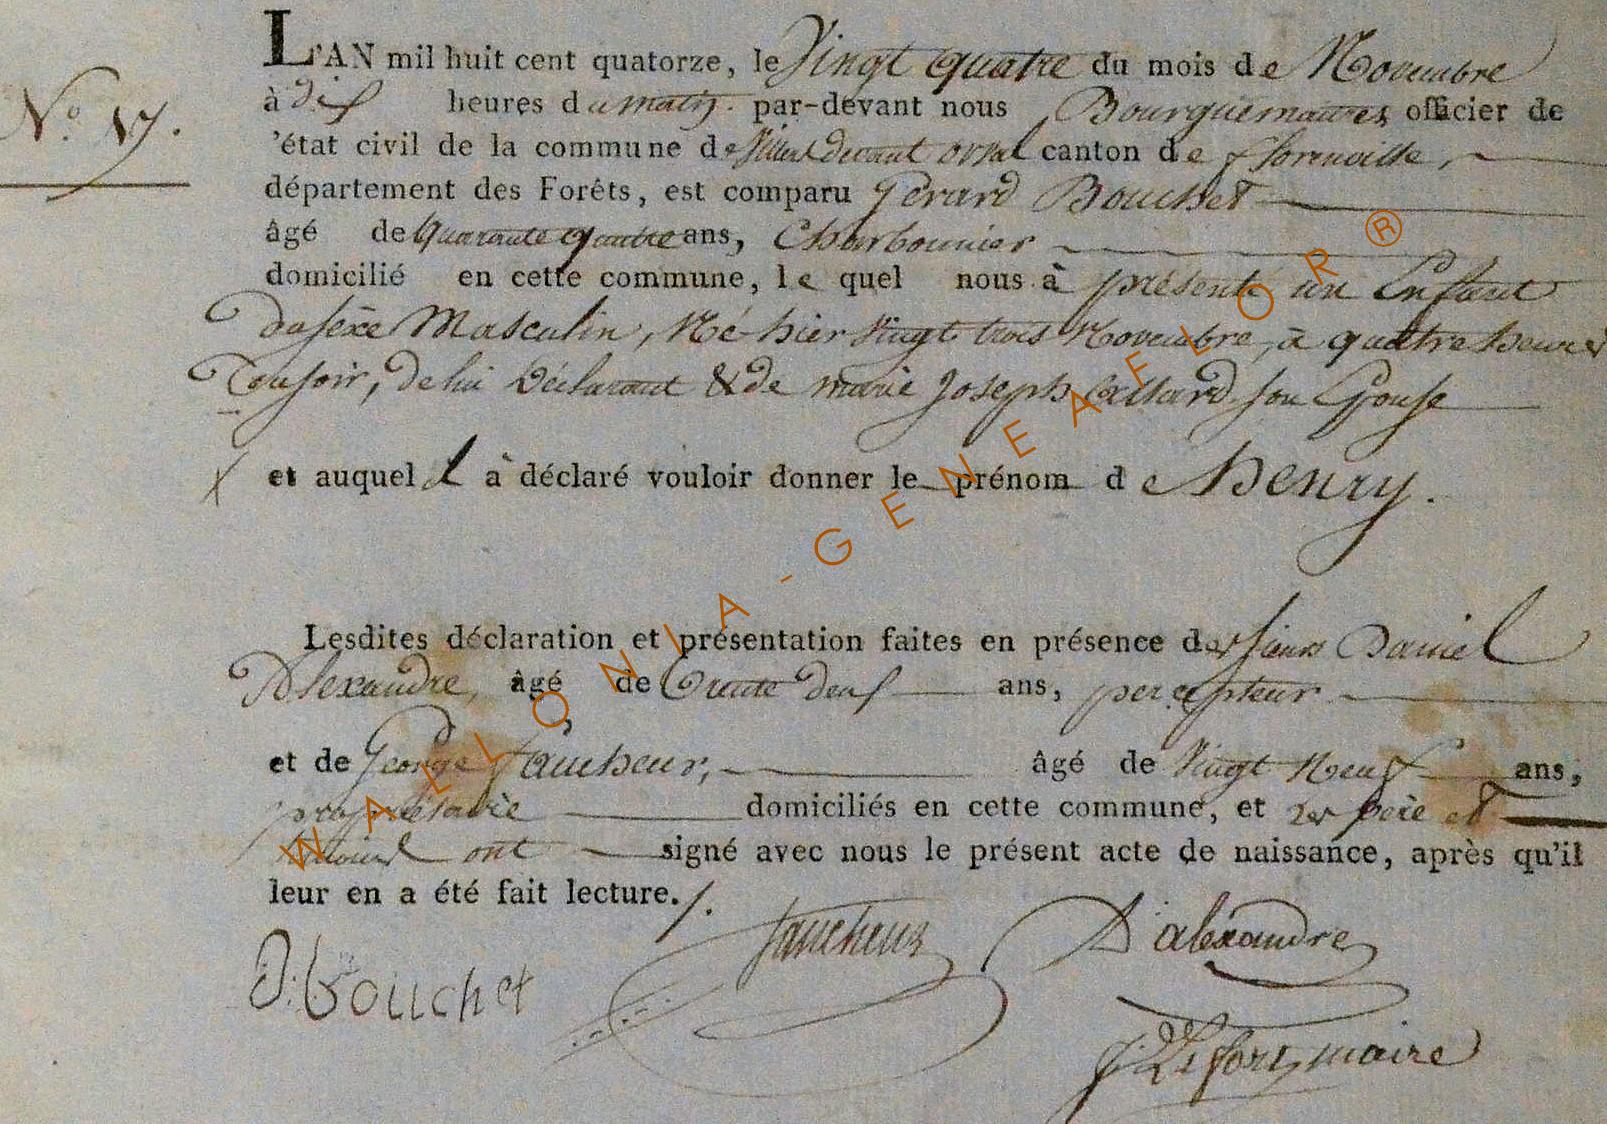 N.° 17.
L'AN mil huit cent quatorze, le Vingt quatre du mois de Novembre
à dix heures du matin. par-devant nous Bourguemaitre officier de
'état civil de la commune de Villers devant orval canton de florenville,
département des Forêts, est comparu Gerard Bouchet
âgé de Quarante quatre ans, Charbonnier
domicilié en cette commune, le quel nous à présenté un Enfant
du sexe Masculin, Né hier Vingt trois Novembre, à quatre heures
Du soir, de lui Déclarant & de marie Joseph Collard son Epouse
et auquel il à déclaré vouloir donner le prénom de henry.
Lesdites déclaration et présentation faites en présence des sieurs Daniel
Alexandre, âgé de Trente deux ans, percepteur
et de George faucheur, âgé de Vingt Neuf ans,
propriétaire domiciliés en cette commune, et les père et
témoins ont signé avec nous le présent acte de naissance, après qu'il
leur en a été fait lecture./.
faucheur D alexandre
J. bouchet
J. Lefort, maire
WALLONIA-GENEAFLOR®